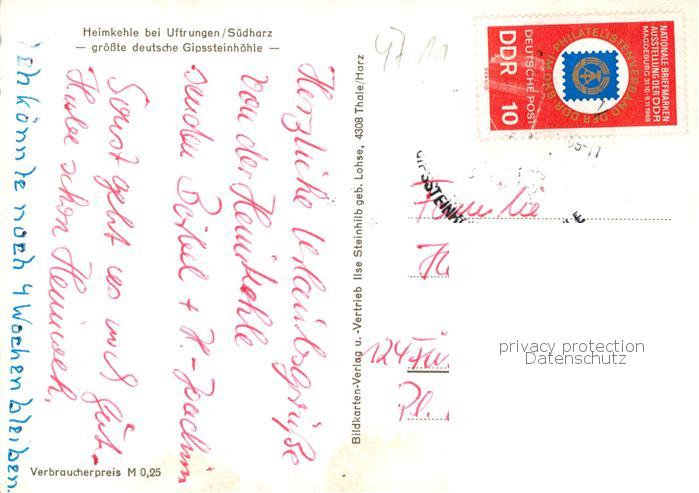 Heimkehle bei Uftrungen/Südharz
— größte deutsche Gipssteinhöhle —
Herzliche Urlaubsgrüße
von der Heimkehle
senden Bärbel + H.-Joachim
Sonst geht es uns gut.
Habe schon Heimweh.
Ich könnte noch 4 Wochen bleiben.
Verbraucherpreis M 0,25
Bildkarten-Verlag u. -Vertrieb Ilse Steinhilb geb. Lohse, 4308 Thale/Harz
47 11
NATIONALE BRIEFMARKEN
AUSSTELLUNG DER DDR
MAGDEBURG 31.10.-9.11.1969
PHILATELISTENVERBAND
DER DDR
DEUTSCHE POST
DDR 10
GIPSSTEINH
Familie
H
124 Fü
Pl.
privacy protection
Datenschutz